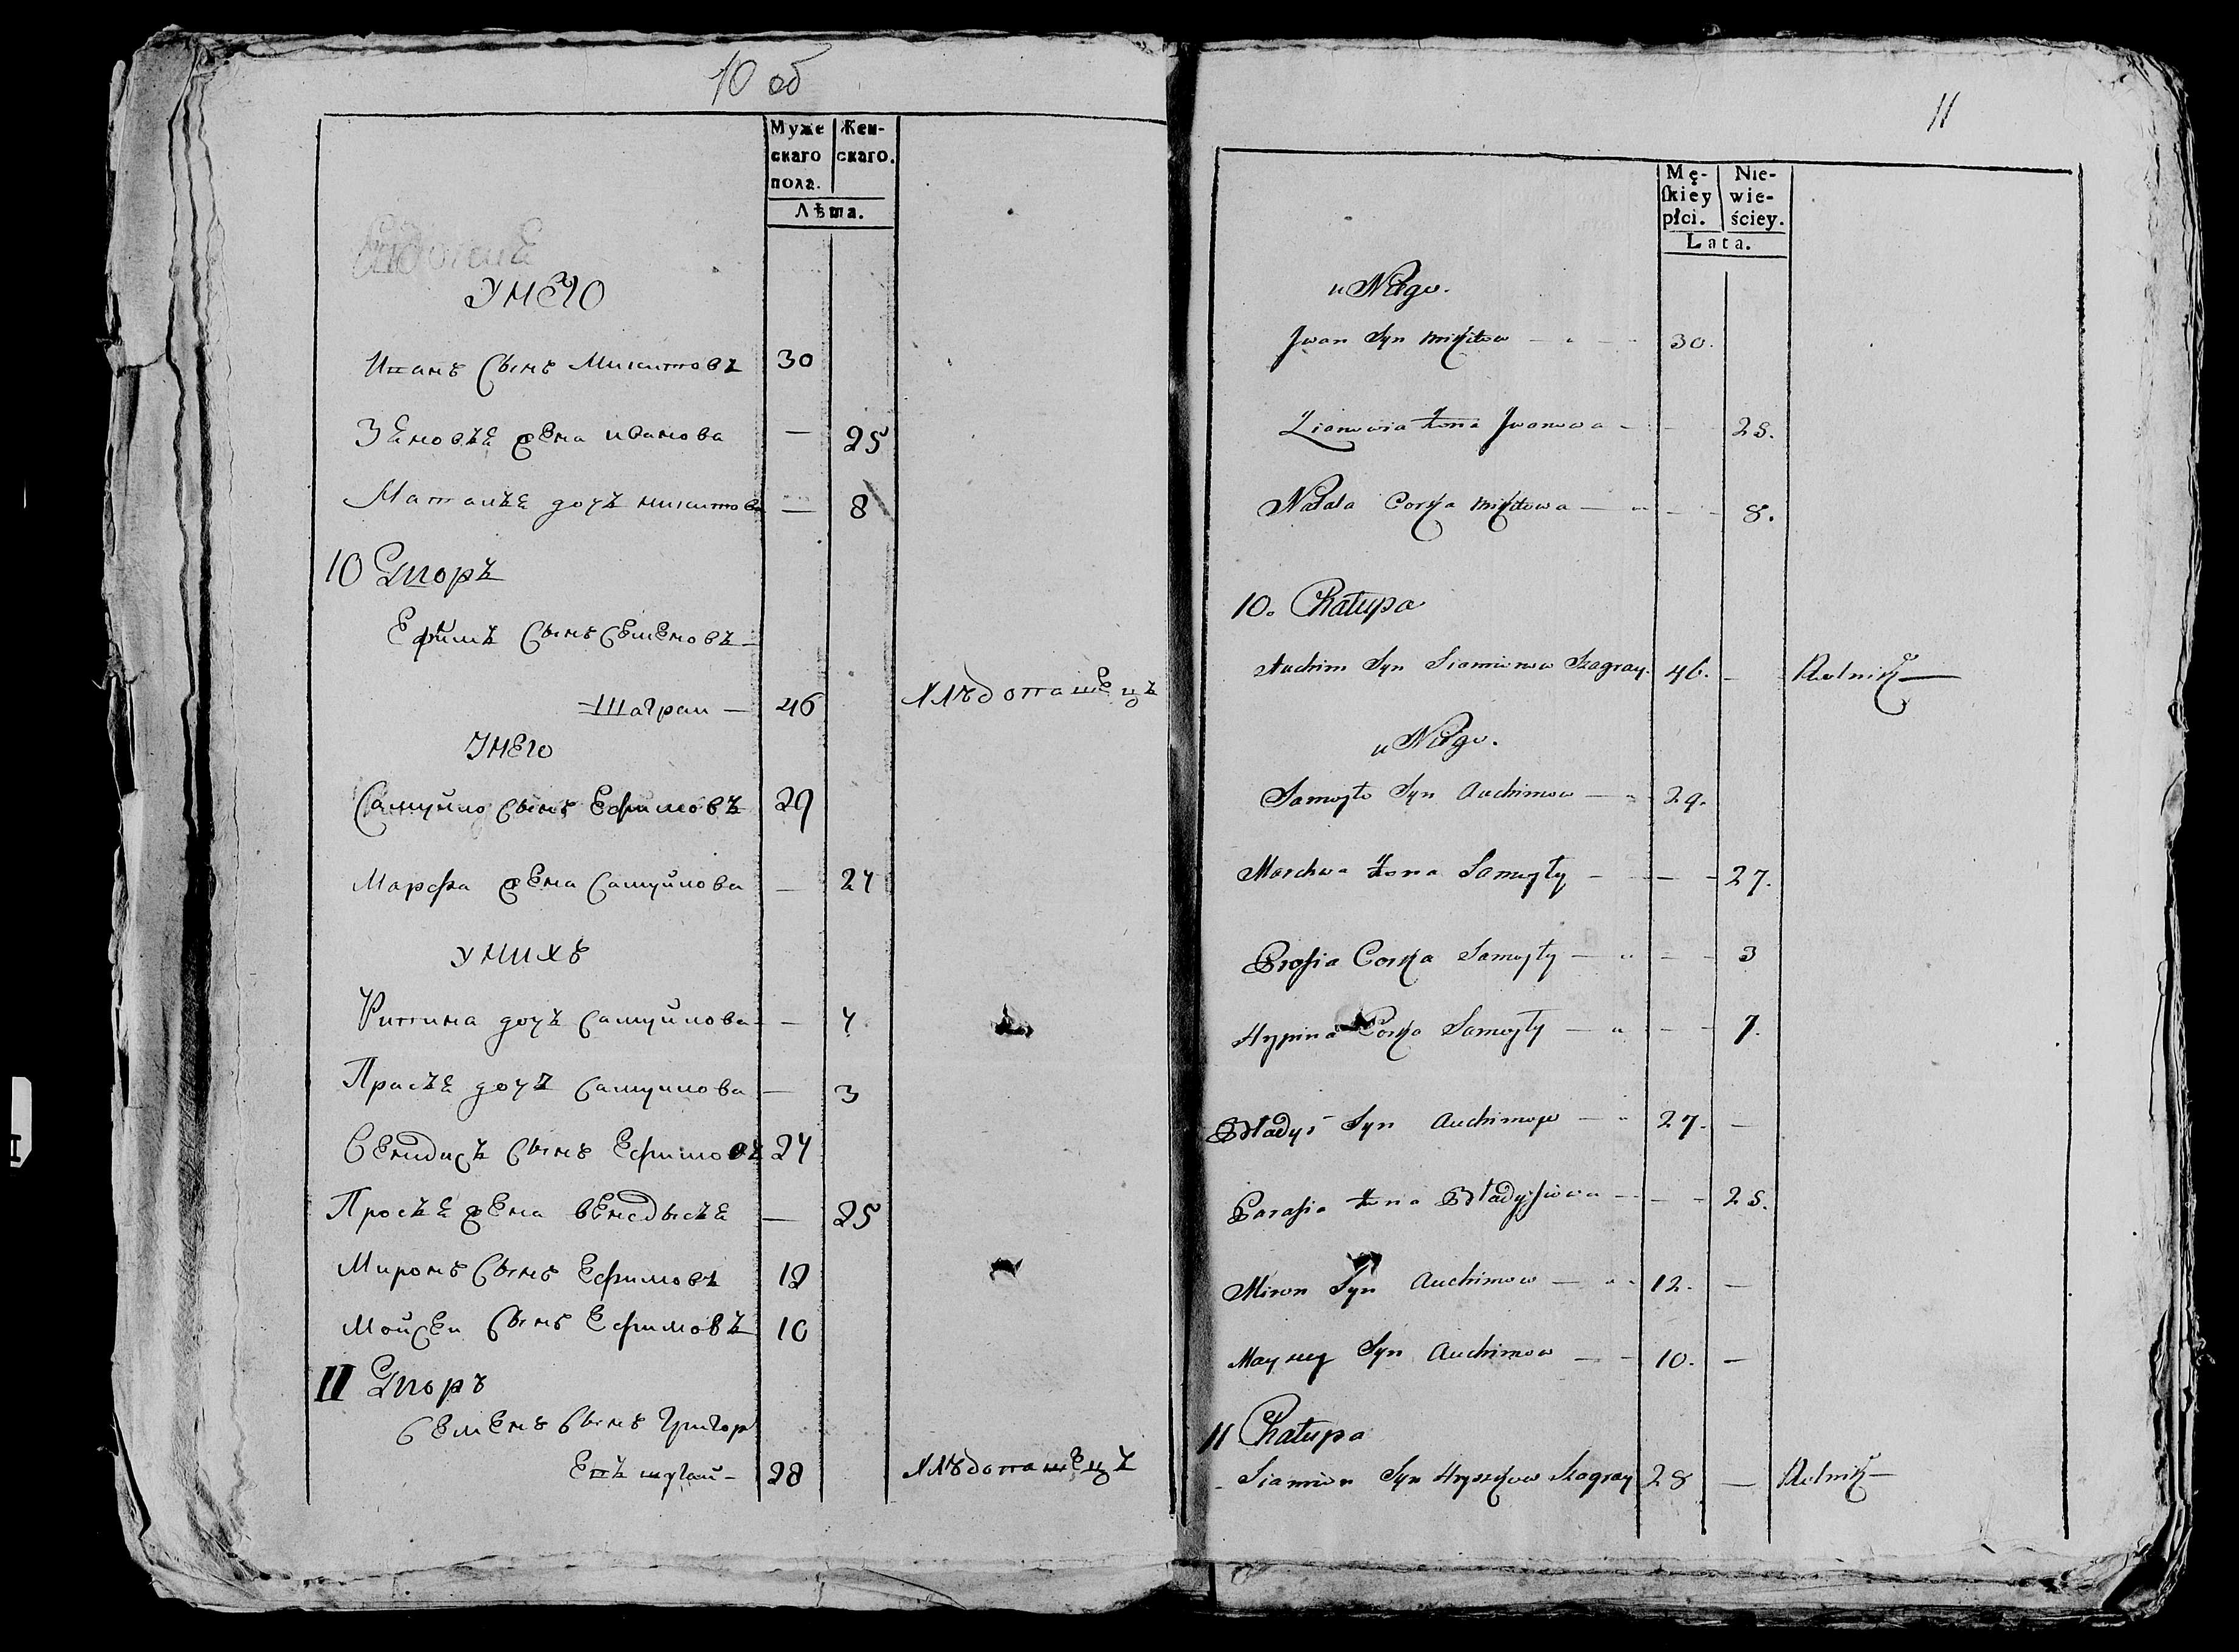 10 об
Муже
скаго
пола.
Жен-
скаго.
Лѣта.
У НЕГО
Иванъ Сынъ Микитовъ 30
Зѣновѣя жена иванова — 25
Наталѣя дочъ микитова — 8
10 Дворъ
Ефимъ Сынъ Семеновъ —
Шаграи — 46 Хлѣбопашецъ
У НЕГО
Самуйло Сынъ Ефимовъ 29
Марфа жена Самуйлова — 27
У НИХЪ
дочъ Самуйлова — 7
Прасъя дочъ Самуилова — 3
Сынъ Ефимовъ 27
Просъя жена — 25
Миронъ Сынъ Ефимовъ 12
Мойсеи Сынъ Ефимовъ 10
11 Дворъ
Семенъ Сынъ Григор
евъ — 28 Хлѣбопашецъ
11
Mę-
ſkiey
płci.
Nie-
wie-
ściey.
Lata.
u Niego.
Jwan Syn Mikitow — 30.
Zianowia żona Jwanowa — 25.
Natala Corka Mikitowa — 8.
10. Chałupa
Auchim Syn Siamionow Szagray. 46. — Rolnik —
u Niego.
Samoyło Syn Auchimow — 29.
Marchwa żona Samoyły — 27.
Prosia Corka Samoyły — 3
Hypina Corka Samoyły — 7.
Władyś Syn Auchimow — 27. —
Parasia żona Władysiowa — 25.
Miron Syn Auchimow — 12. —
Syn Auchimow — 10. —
11 Chałupa
Siamion Syn Hryszkow Szagray 28 — Rolnik —